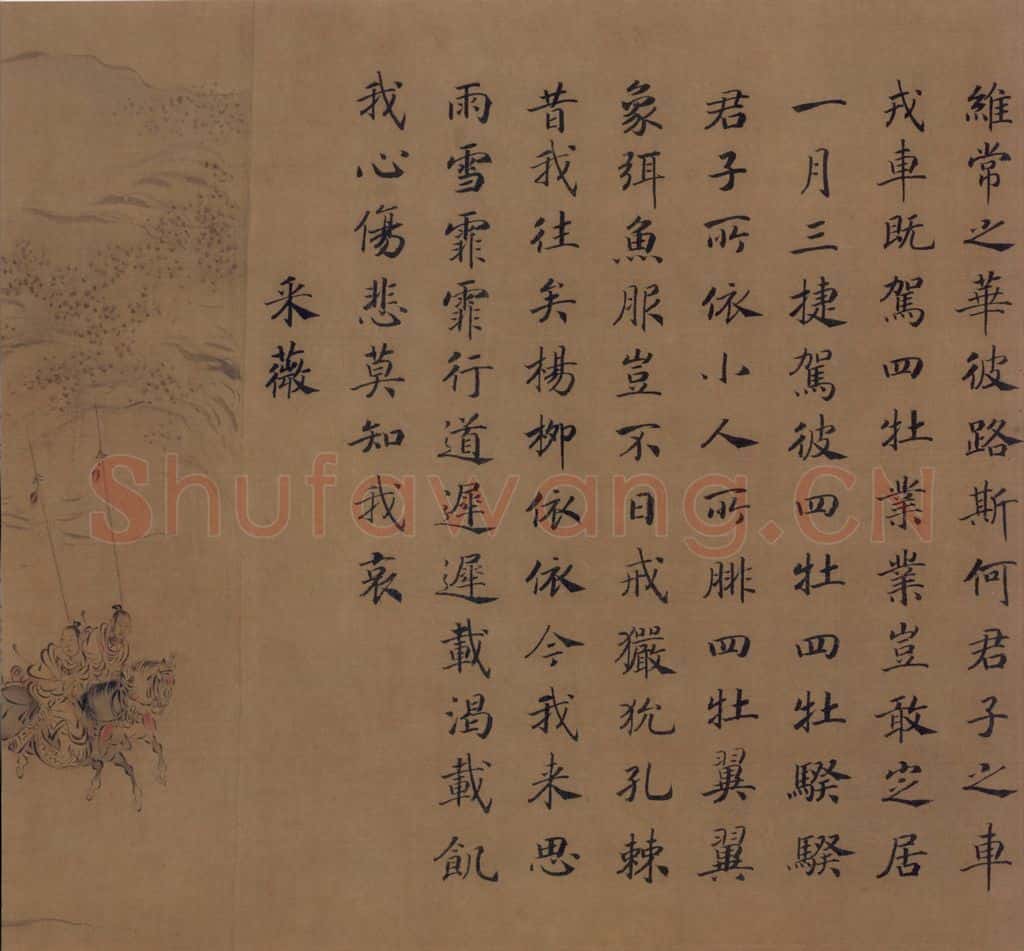 維常之華彼路斯何君子之車
戎車既駕四牡業業豈敢定居
一月三捷駕彼四牡四牡騤騤
君子所依小人所腓四牡翼翼
象弭魚服豈不日戒玁狁孔棘
昔我往矣楊柳依依今我来思
雨雪霏霏行道遲遲載渴載飢
我心傷悲莫知我哀
采薇
Shufawang.CN